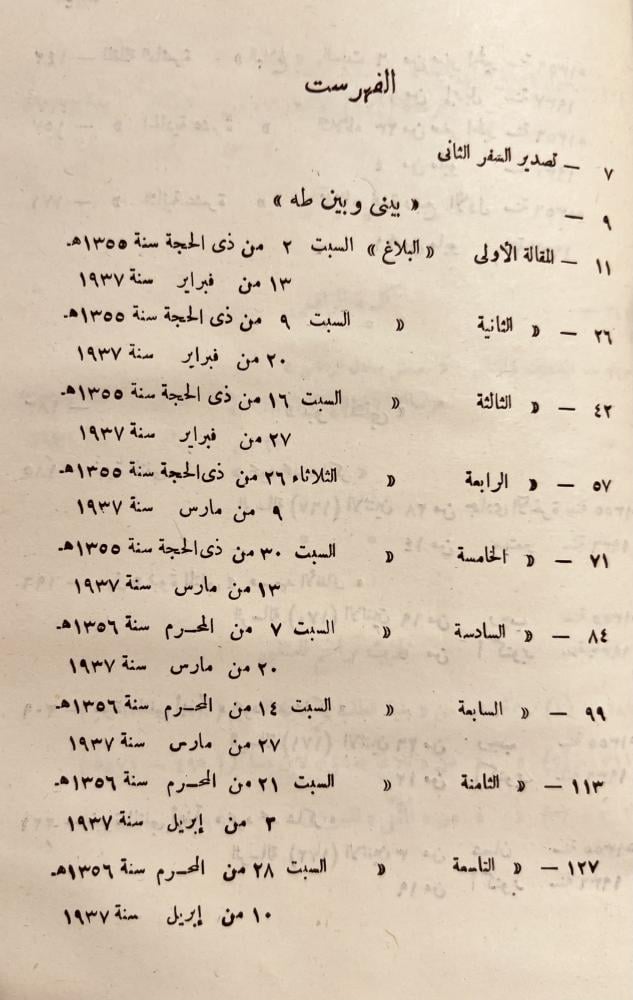 الفهرست
٧ — تصدير السفر الثانى
٩ — « بينى وبين طه »
١١ — المقالة الأولى « البلاغ » السبت ٢ من ذى الحجة سنة ١٣٥٥هـ.
١٣ من فبراير سنة ١٩٣٧
٢٦ — « الثانية « السبت ٩ من ذى الحجة سنة ١٣٥٥هـ.
٢٠ من فبراير سنة ١٩٣٧
٤٢ — « الثالثة « السبت ١٦ من ذى الحجة سنة ١٣٥٥هـ.
٢٧ من فبراير سنة ١٩٣٧
٥٧ — « الرابعة « الثلاثاء ٢٦ من ذى الحجة سنة ١٣٥٥هـ.
٩ من مارس سنة ١٩٣٧
٧١ — « الخامسة « السبت ٣٠ من ذى الحجة سنة ١٣٥٥هـ.
١٣ من مارس سنة ١٩٣٧
٨٤ — « السادسة « السبت ٧ من المحرم سنة ١٣٥٦هـ.
٢٠ من مارس سنة ١٩٣٧
٩٩ — « السابعة « السبت ١٤ من المحرم سنة ١٣٥٦هـ.
٢٧ من مارس سنة ١٩٣٧
١١٣ — « الثامنة « السبت ٢١ من المحرم سنة ١٣٥٦هـ.
٣ من إبريل سنة ١٩٣٧
١٢٧ — « التاسعة « السبت ٢٨ من المحرم سنة ١٣٥٦هـ.
١٠ من إبريل سنة ١٩٣٧